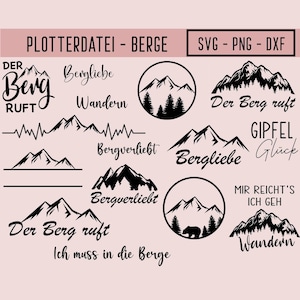 PLOTTERDATEI - BERGE
SVG - PNG - DXF
DER
Berg
RUFT
Bergliebe
Wandern
Der Berg ruft
Bergverliebt
Bergliebe
GIPFEL
Glück
Bergverliebt
MIR REICHT'S
ICH GEH
Wandern
Der Berg ruft
Ich muss in die Berge